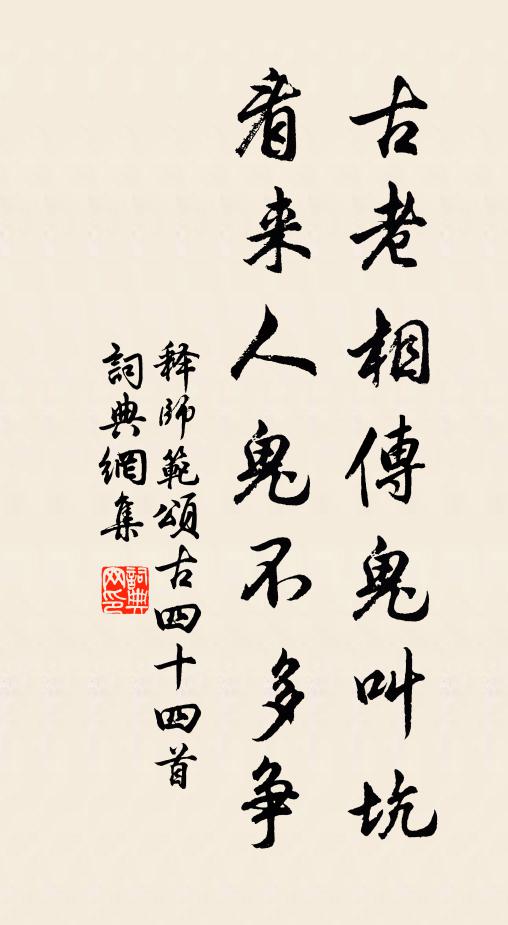 古老相傳鬼叫坑
看来人鬼不多争
释師範頌古四十四首
詞典網集
詞典
网印